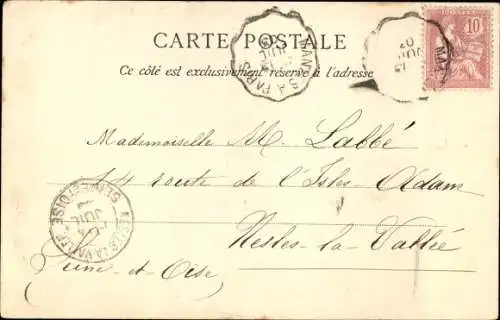 CARTE POSTALE
Ce côté est exclusivement réservé à l'adresse
NANTES A PARIS
10
Mademoiselle M. Labbé
14 route de l'Isles-Adam
Nesles-la-Vallée
Seine-et-Oise
NESLES-LA-VALLÉE
SEINE-ET-OISE